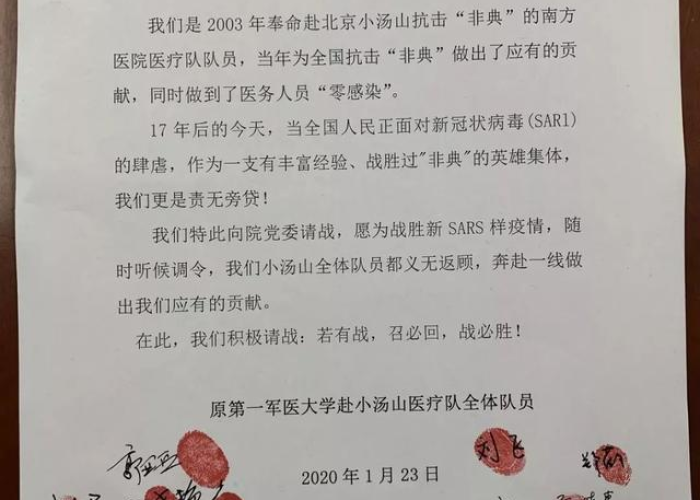 我们是 2003 年奉命赴北京小汤山抗击“非典”的南方
医院医疗队队员，当年为全国抗击“非典”做出了应有的贡
献，同时做到了医务人员“零感染”。
17 年后的今天，当全国人民正面对新冠状病毒(SARI)
的肆虐，作为一支有丰富经验、战胜过"非典"的英雄集体，
我们更是责无旁贷！
我们特此向院党委请战，愿为战胜新 SARS 样疫情，随
时听候调令，我们小汤山全体队员都义无返顾，奔赴一线做
出我们应有的贡献。
在此，我们积极请战：若有战，召必回，战必胜！
原第一军医大学赴小汤山医疗队全体队员
刘飞
2020 年 1 月 23 日